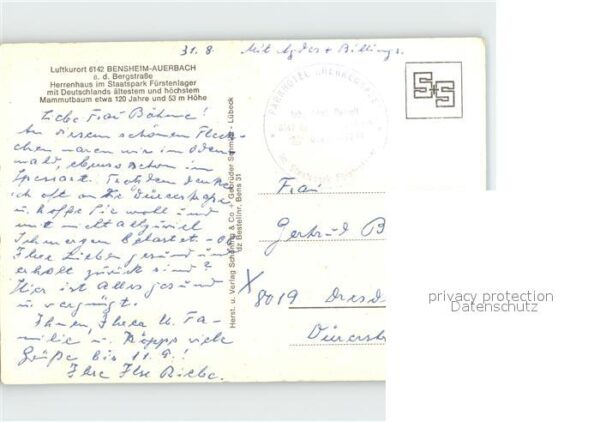 31.8. Mit
Luftkurort 6142 BENSHEIM-AUERBACH
a. d. Bergstraße
Herrenhaus im Staatspark Fürstenlager
mit Deutschlands ältestem und höchstem
Mammutbaum etwa 120 Jahre und 53 m Höhe
Liebe Frau Böhme!
An diesem schönen Fleck-
chen waren wir im Oden-
wald, ebenso schon im
Spessart. Trotzdem denke
ich oft an
u. hoffe Sie wohl und
mit nicht allzuviel
Schmerzen belastet - Ob
Ihre Lieben gesund und
erholt zurück sind?
Hier ist alles gesund
u. vergnügt.
Ihnen, Ihrer Fa-
milie u. viele
Grüße bis 11.9.!
Ihre Ilse
Herst. u. Verlag Schöning & Co + Gebrüder Schmidt - Lübeck
Bestellnr. Bens 31
S+S
Frau
Gertrud B
X 8019 Dresd
Dürerstr
privacy protection
Datenschutz